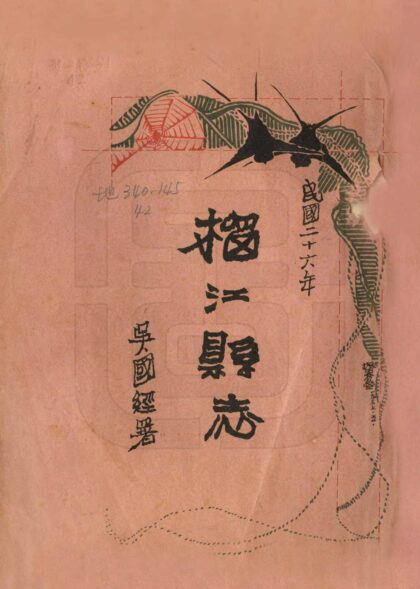 民國二十六年
榴江縣志
吳國經署
地340.145
42